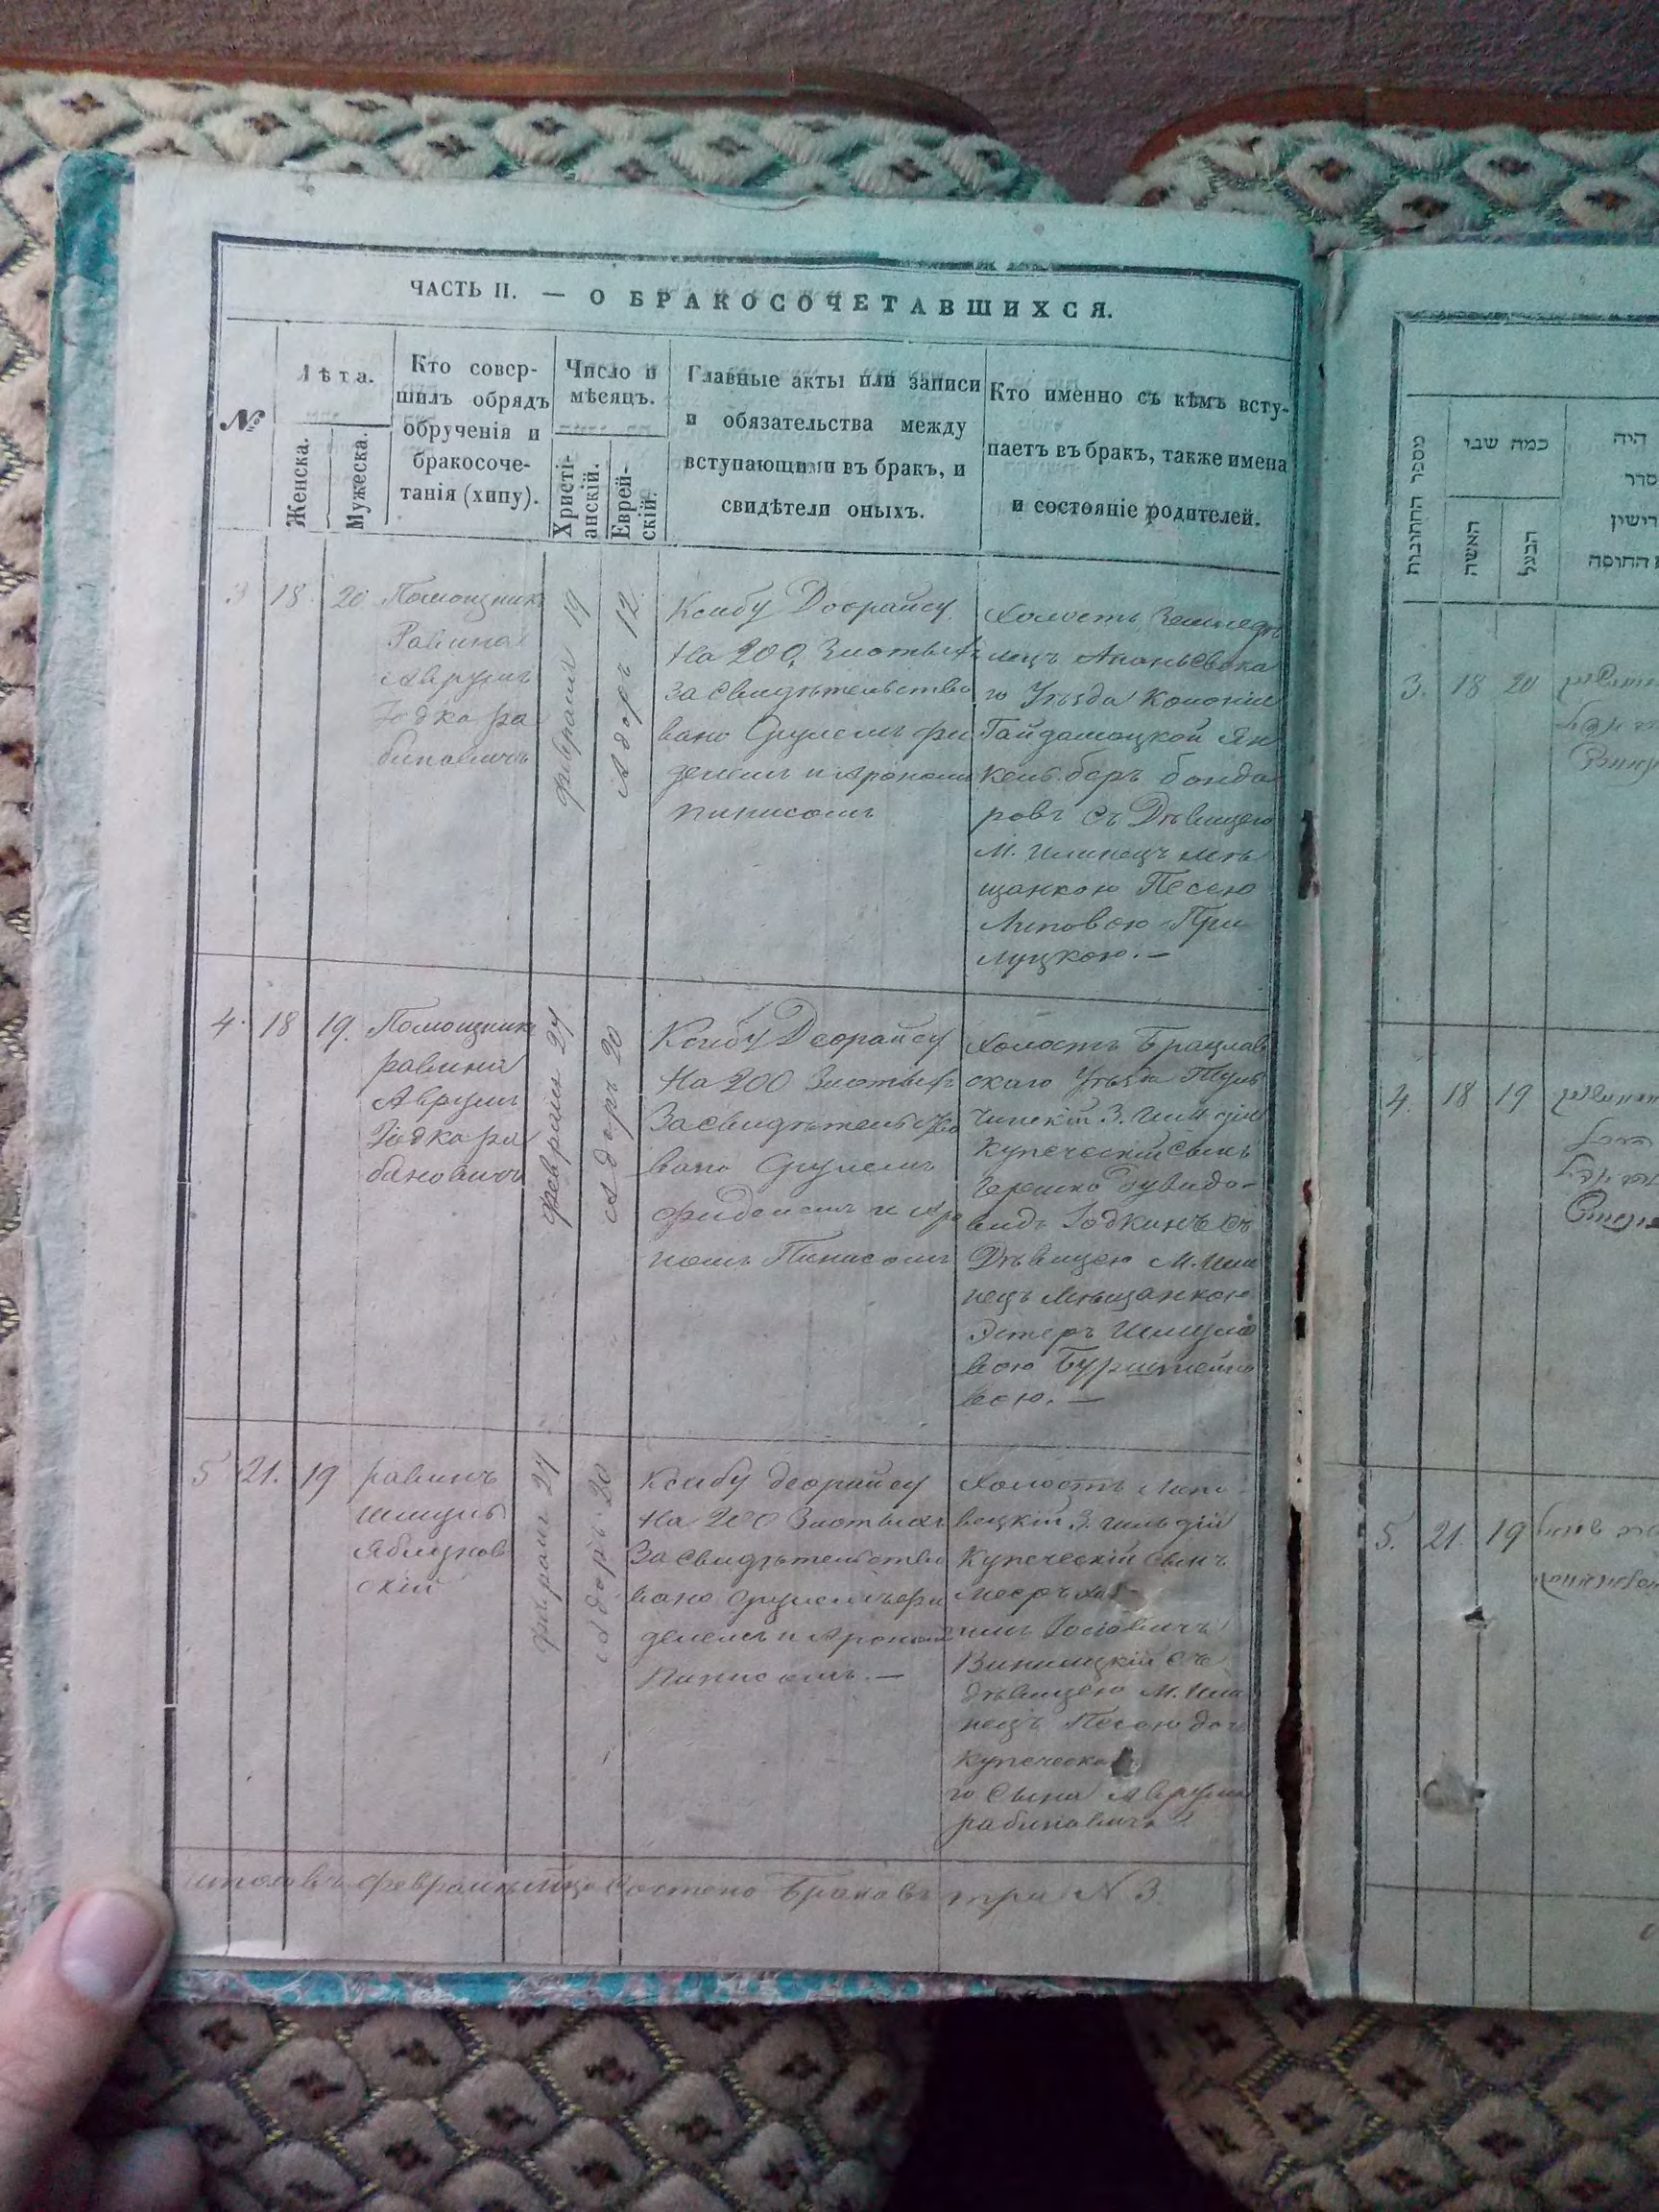 ЧАСТЬ II. — О БРАКОСОЧЕТАВШИХСЯ.
№
Лѣта.
Женска.
Мужеска.
Кто совер-
шилъ обрядъ
обрученія и
бракосоче-
танія (хипу).
Число и
мѣсяцъ.
Христі-
анскій.
Еврей-
скій.
Главные акты или записи
и обязательства между
вступающими въ бракъ, и
свидѣтели оныхъ.
Кто именно съ кѣмъ всту-
паетъ въ бракъ, также имена
и состояніе родителей.
3
18
20
Помощникъ
Равина
Аврумъ
Іодка ра
биновичъ
февраля 19
Адоръ 12
Ксибу Деорайсу
На 200 Злотыхъ
засвидѣтельство
вано Срулемъ фи
делемъ и Арономъ
Пинисомъ
Холостъ Земледѣ
лецъ Ананьевска
го Уѣзда Колоніи
Гайдамацкой Ян
кель беръ бонда
ровъ съ Дѣвицею
М. Илинецъ мѣ
щанкою Песею
Липовою При
луцкою. —
4
18
19.
Помощникъ
равина
Аврумъ
Іодка ра
бановичъ
февраля 27
Адоръ 20
Ксибу Деорайсу
На 200 Злотыхъ
Засвидѣтельство
вано Срулемъ
фиделемъ и Аро
номъ Пинисомъ
Холостъ Брацлав
скаго Уѣзда Туль
чинскій 3. Гильдіи
Купеческій сынъ
Гершко Дувидо-
видъ Іодкинъ съ
Дѣвицею М. Или
нецъ Мѣщанкою
Эстеръ Шмуло
вою Бурштейно
вою. —
5
21.
19
равинъ
Шмуль
Яблунов
скій
февраля 27
Адоръ 20
Ксибу деорайсу
На 200 Злотыхъ
Засвидѣтельство
вано Срулемъ фи
делемъ и Арономъ
Пинисомъ. —
Холостъ Липо
вецкій 3. гильдіи
Купеческій сынъ
Мееръ Ха
имъ Іосіовичъ
Виницкій съ
дѣвицею М. Или
нецъ Песею доч
купеческа
го Сына Аврума
рабиновича
Итого въ февралѣ мцѣ состоно Браковъ три № 3.
מספר החתונות
כמה שני
האשה
הבעל
היה
סדר
3.
18
20
4.
18
19
5.
21.
19